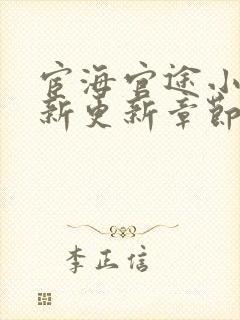 宦海官途小
新更新章節
李正信